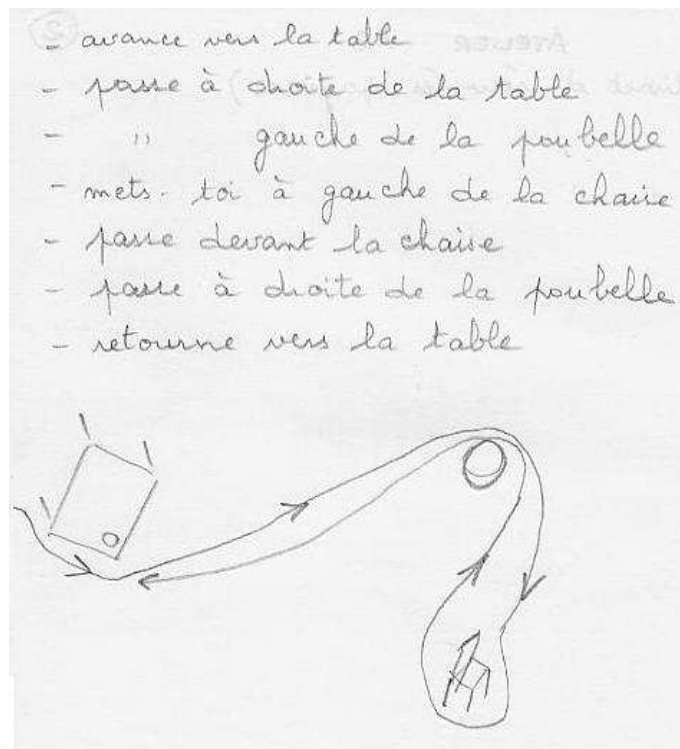 - avance vers la table
- passe à droite de la table
- " gauche de la poubelle
- mets-toi à gauche de la chaise
- passe devant la chaise
- passe à droite de la poubelle
- retourne vers la table